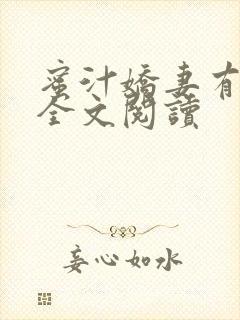 蜜汁嬌妻有
全文閱讀
妾心如水